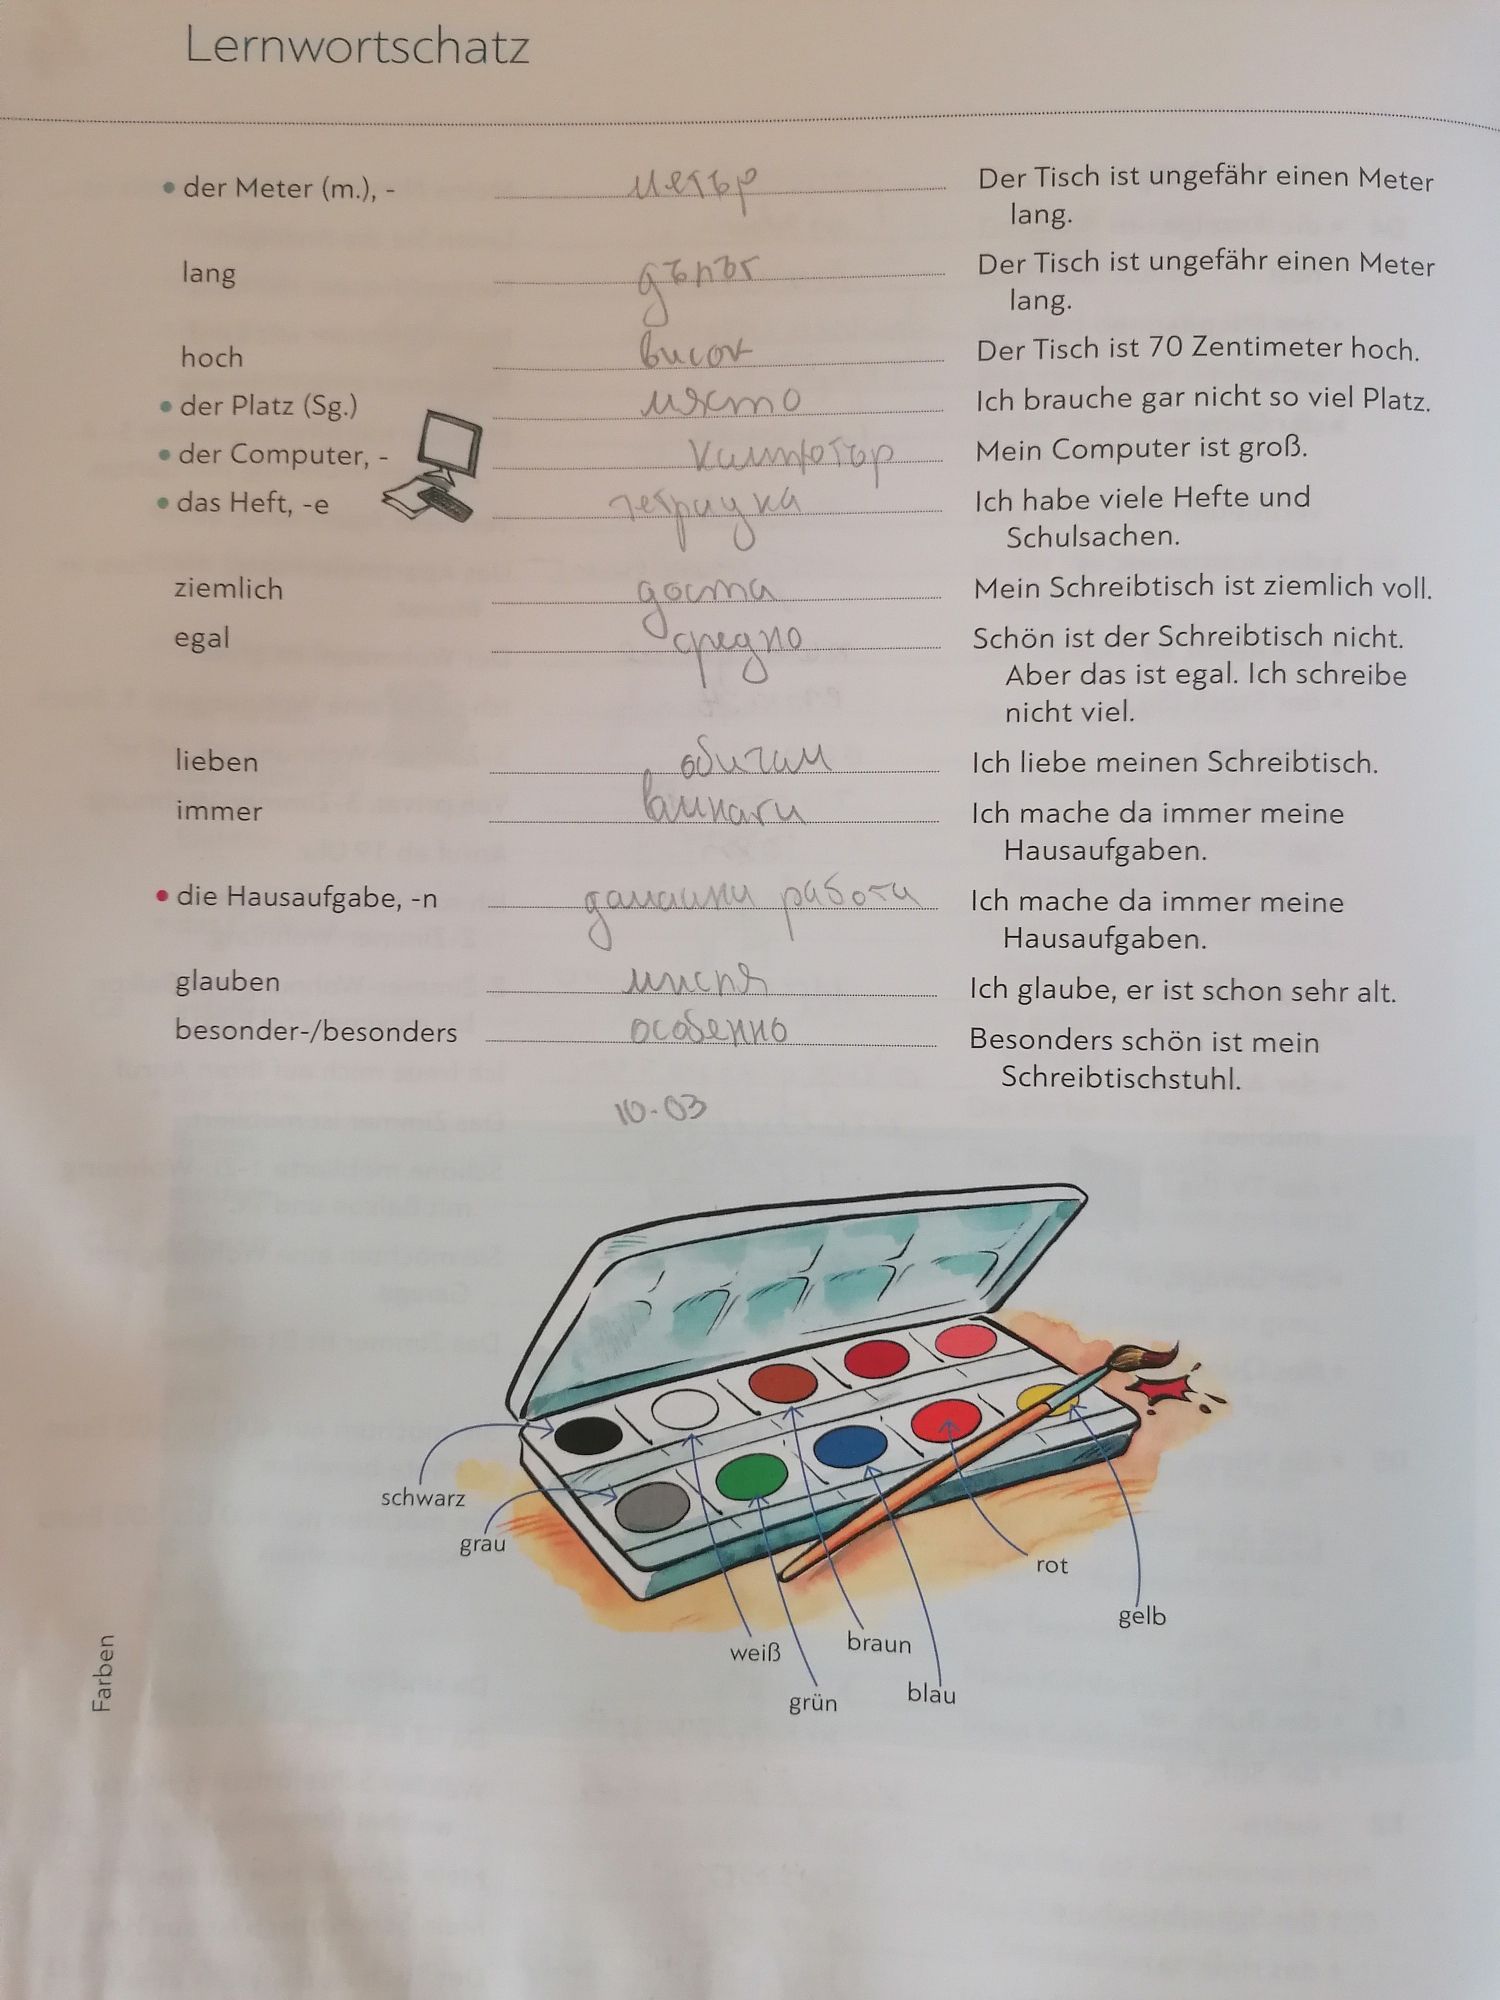 Lernwortschatz
der Meter (m.), - метър Der Tisch ist ungefähr einen Meter
lang.
lang дълъг Der Tisch ist ungefähr einen Meter
lang.
hoch висок Der Tisch ist 70 Zentimeter hoch.
der Platz (Sg.) място Ich brauche gar nicht so viel Platz.
der Computer, - Mein Computer ist groß.
das Heft, -e тетрадка Ich habe viele Hefte und
Schulsachen.
ziemlich доста Mein Schreibtisch ist ziemlich voll.
egal средно Schön ist der Schreibtisch nicht.
Aber das ist egal. Ich schreibe
nicht viel.
lieben обичам Ich liebe meinen Schreibtisch.
immer винаги Ich mache da immer meine
Hausaufgaben.
die Hausaufgabe, -n домашни работи Ich mache da immer meine
Hausaufgaben.
glauben мисля Ich glaube, er ist schon sehr alt.
besonder-/besonders особенно Besonders schön ist mein
Schreibtischstuhl.
10-03
schwarz
grau
rot
gelb
weiß
braun
grün
blau
Farben